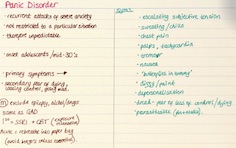 Panic Disorder
- recurrent attacks of severe anxiety
- not restricted to a particular situation
- therefore unpredictable
- onset adolescents/mid-30's
- primary symptoms →
- secondary fear of dying,
losing control, going mad.
(M) exclude epilepsy,
same as GAD
1st = SSRI + CBT
Acute = rebreathe into paper bag
Signs:
- escalating subjective tension
- sweating/chills
- chest pain
- palps, tachycardia
- tremor
- nausea
- 'butterflies in tummy'
- dizzy/faint
- depersonalisation
- dread - fear of loss of control/dying
- paraesthesiae